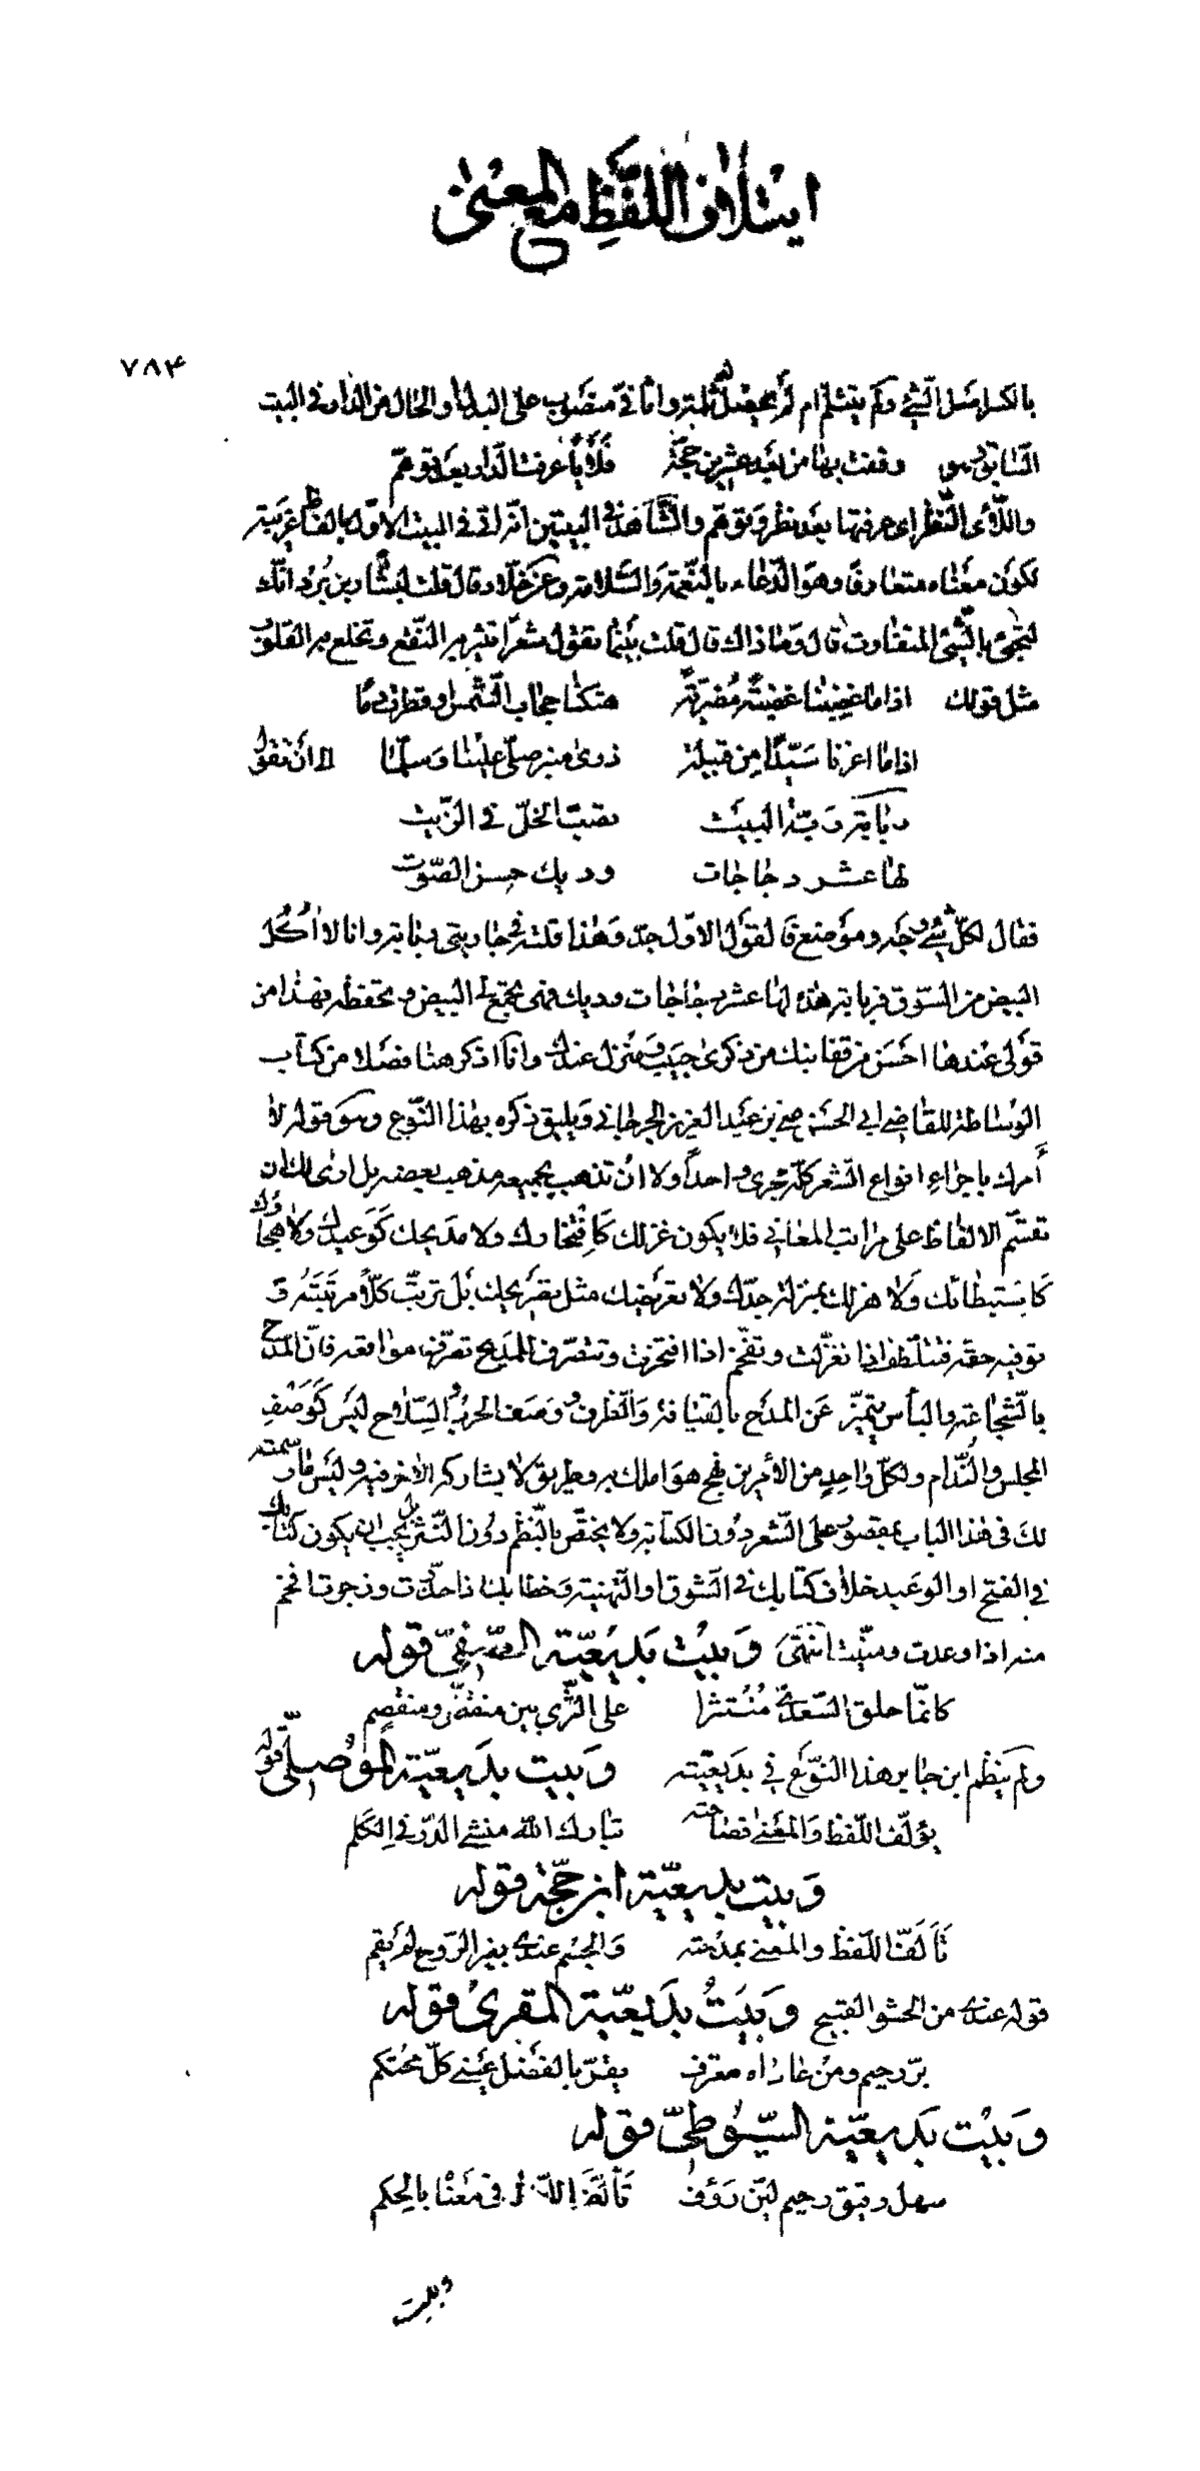 ايتلاف اللفظ مع المعنى
٧٨٤
بالكسر اصل الشئ ولم يتثلم ام لم يحصل ثلمته واثافى منصوب على البدل او الحال من الدار فى البيت
السابق وهو وقفت بها من بعد عشرين حجّة فلأياً عرفت الدار بعد توهّم
واللأى النظر اى عرفتها بعد نظر وتوهّم والشاهد فى البيتين انّه اتى فى البيت الاوّل بالفاظ غريبة
لكون معناه متعارفا وهو الدّعاء بالنّعمة والسّلامة وعن خلاد قال قلت لبشّار بن برد انّك
لتجئ بالشئ المتفاوت قال وما ذاك قال قلت بينما تقول شعرا تثير به النّقع وتخلع به القلوب
مثل قولك اذا ما غضبنا غضبة مُضريّة هتكنا حجاب الشّمس او قطرت دما
اذا ما اعرنا سَيّدًا مِن قبيلة ذرى منبر صلّى علينا وسلّما الى ان تقول
ربابة ربّة البيت تصبّ الخلّ فى الزّيت
لها عشر دجاجات وديك حسن الصّوت
فقال لكلّ شئ وجه وموضع فالقول الاوّل جدّ وهذا قلته فى جاريتى ربابة وانا لا اٰكُل
البيض من السّوق فربابة هذه لها عشر دجاجات وديك فهى تجمع لى البيض وتحفظه فهذا من
قولى عندها احسن من قفا نبك من ذكرى حبيب ومنزل عندك وانا اذكر هنا فصلا من كتاب
الوساطة للقاضى ابى الحسن على بن عبد العزيز الجرجانى ويليق ذكره بهذا النّوع وهو قوله لا
أمرك باجراء انواع الشعر كلّه مجرى واحداً ولا ان تذهب بجميعه مذهب بعضه بل ارى لك ان
تقسّم الالفاظ على مراتب المعانى فلا يكون غزلك كافتخارك ولا مديحك كوعيدك ولا هجاؤك
كاستبطائك ولا هزلك بمنزلة جدّك ولا تعريضك مثل تصريحك بل ترتّب كلّا مرتبته و
توفيه حقّه فتتلطّف اذا تغزّلت وتفخّم اذا افتخرت وتتصرّف للمديح تصرّف مواقعه فانّ المدح
بالشّجاعة والبأس يتميّز عن المدح باللّباقة والظّرف ووصف الحرب والسّلاح ليس كوصف
المجلس والنّدام ولكلّ واحد من الأمرين نهج هو املك به وطريق لا يشاركه الآخر فيه وليس ما رسمته
لك فى هذا الباب بمقصور على الشّعر دون الكتابة ولا يختصّ بالنّظم دون النّثر بل يجب ان يكون كتابك
فى الفتح او الوعيد خلاف كتابك فى التشوق او التّهنية وخطابك اذا حذّرت وزجرت افخم
منه اذا وعدت ومنّيت انتهى وبيت بديعيّة الصّفىّ قوله
كانّما حلق السّعدىّ مُنتثرا على الثّرى بين منفضّ ومنفصم
ولم ينظم ابن جابر هذا النّوع فى بديعيّته وبيت بديعيّة الموصلّى قوله
يؤلّف اللّفظ والمعنى فصاحته تبارك اللّٰه منشى الدّرّ فى الكلم
وبيت بديعيّة ابن حجّة قوله
تألّف اللّفظ والمعنى بمدحته والجسم عندى بغير الرّوح لم يقم
قوله عندى من الحشو القبيح وبيت بديعيّة المقرى قوله
برّ رحيم ومن عاراه معترف يقرّ بالفضل عينى كلّ محتكم
وبيت بديعيّة السّيوطىّ قوله
سهل رقيق رحيم ليّن رؤف تألّف اللّفظ فى معناه بالحكم
وبيت